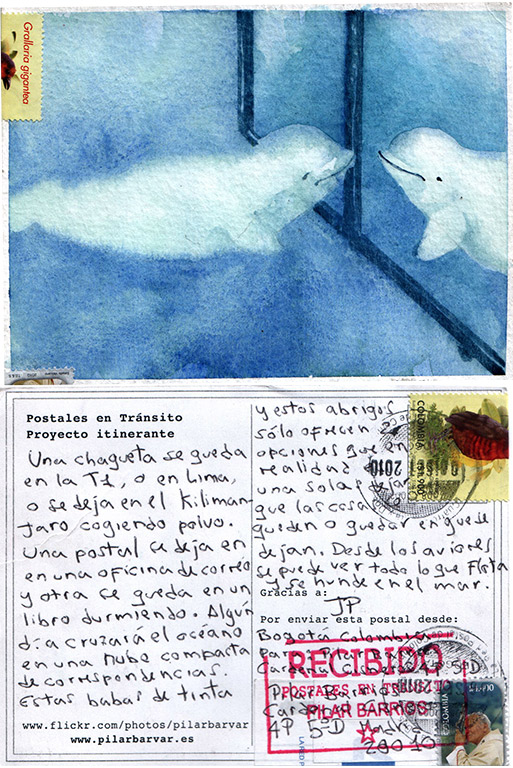 Grallaria gigantea
Postales en Tránsito
Proyecto itinerante
Una chaqueta se queda
en la T1, o en Lima,
o se deja en el Kiliman-
jaro cogiendo polvo.
Una postal se deja en
en una oficina de correo
y otra se queda en un
libro durmiendo. Algún
día cruzará el océano
en una nube compacta
de correspondencias.
Estas babas de tinta
www.flickr.com/photos/pilarbarvar
www.pilarbarvar.es
y estos abrigos
sólo ofrecen
opciones que en
realidad
una sola: dejar
que las cosas
queden o quedar en que se
dejan. Desde los aviones
se puede ver todo lo que flota
y se hunde en el mar.
Gracias a:
JP
Por enviar esta postal desde:
Bogotá Colombia
RECIBIDO
POSTALES EN TRÁNSITO
PILAR BARRIOS
5-D
28010
COLOMBIA
2010
COLOMBIA